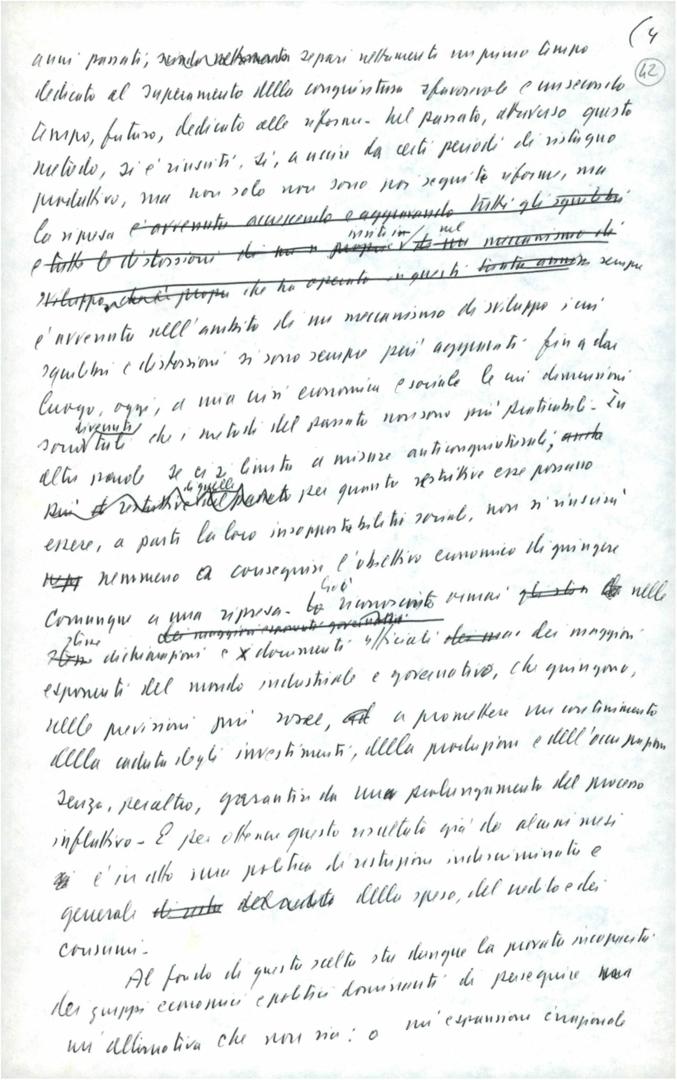 (4
42
anni passati; separi nettamente un primo tempo
dedicato al superamento della congiuntura sfavorevole e un secondo
tempo, futuro, dedicato alle riforme. Nel passato, attraverso questo
metodo, si è riusciti, sì, a uscire da certi periodi di ristagno
produttivo, ma non solo non sono poi seguite riforme, ma
la ripresa è avvenuta accrescendo e aggravando tutti gli squilibri
e tutte le distorsioni insite in nel meccanismo di
sviluppo che ha operato in questi anni sempre
è avvenuta nell'ambito di un meccanismo di sviluppo i cui
squilibri e distorsioni si sono sempre più aggravati fino a dar
luogo, oggi, a una crisi economica e sociale le cui dimensioni
sono divenute tali che i metodi del passato non sono più praticabili. In
altre parole se ci si limita a misure anticongiunturali,
di quelle per quanto restrittive esse possano
essere, a parte la loro insopportabilità sociale, non si riuscirà
nemmeno a conseguire l'obiettivo economico di giungere
comunque a una ripresa. Ciò è riconosciuto ormai nelle
stesse dichiarazioni e documenti ufficiali dei maggiori
esponenti del mondo industriale e governativo, che giungono,
nelle previsioni più rosee, a promettere un contenimento
della caduta degli investimenti, della produzione e dell'occupazione
senza, peraltro, garantire da un prolungamento del processo
inflattivo. E per ottenere questo risultato già da alcuni mesi
è in atto una politica di restrizione indiscriminata e
generale della spesa, del credito e dei
consumi.
Al fondo di questa scelta sta dunque la provata incapacità
dei gruppi economici e politici dominanti di perseguire
un'alternativa che non sia: o un'espansione irrazionale